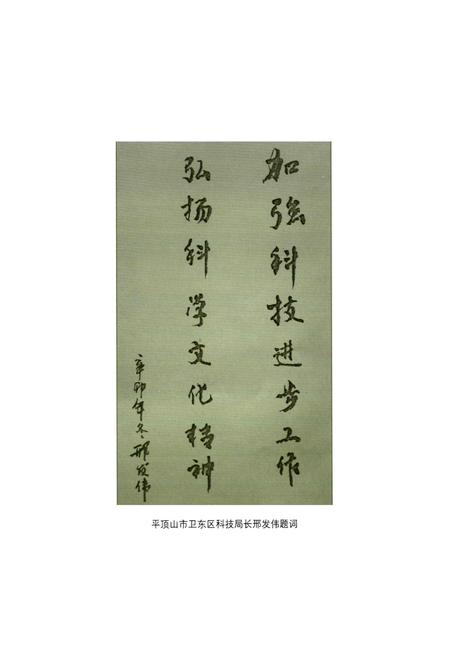 加强科技进步工作
弘扬科学文化精神
辛卯年冬邢发伟
平顶山市卫东区科技局长邢发伟题词